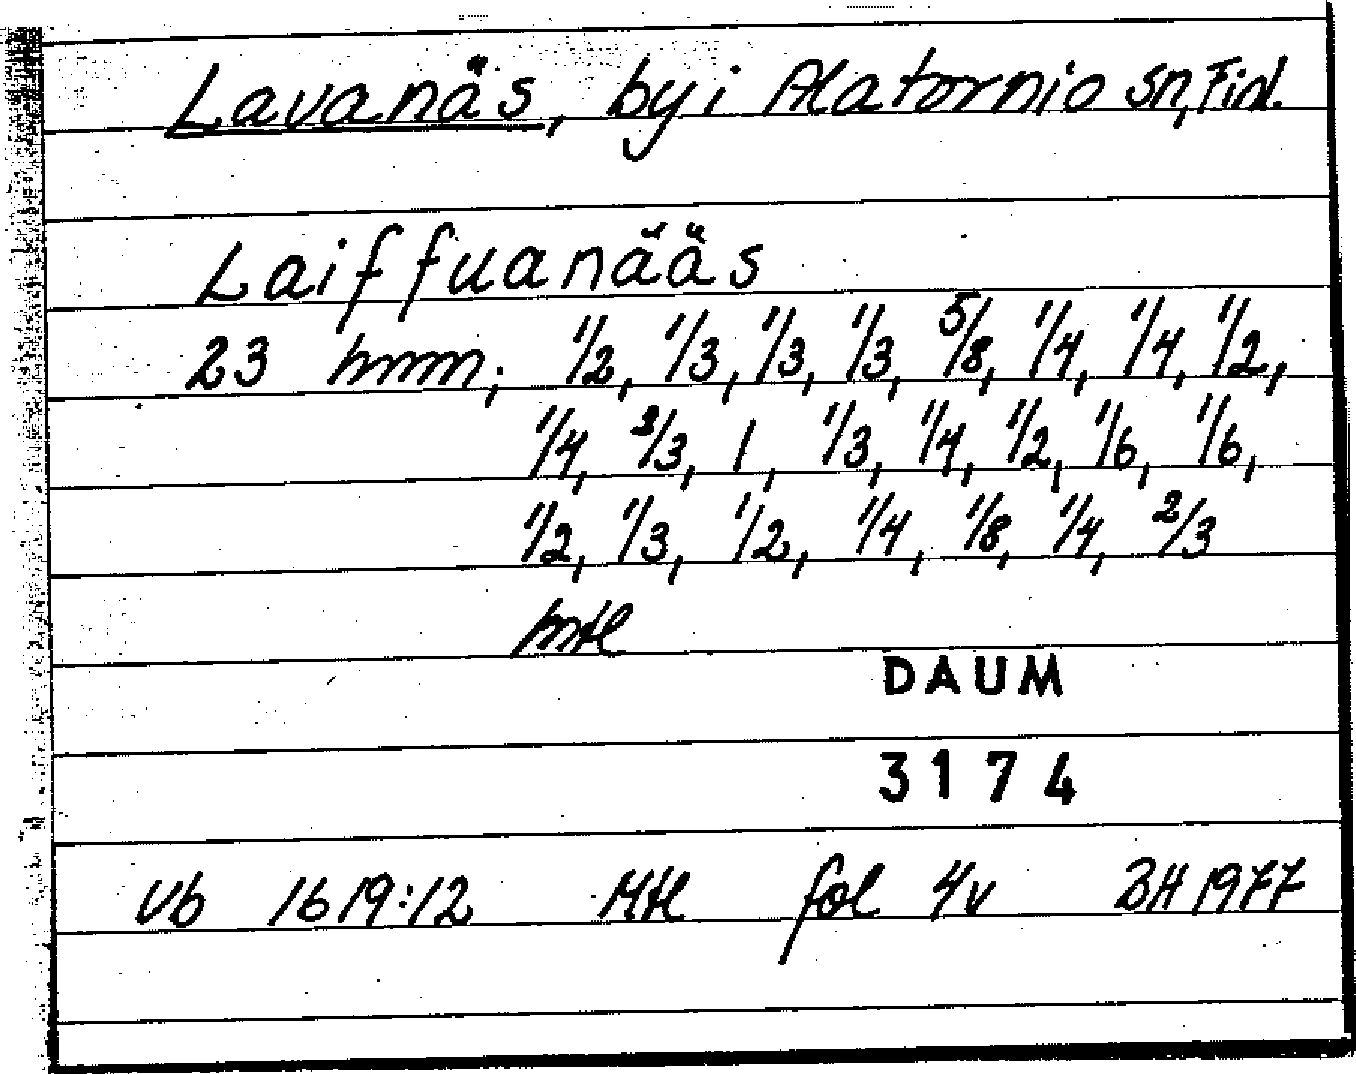 Lavanäs, by i Alatornio sn, Finl.
Laiffuanääs
23 hmm; 1/2, 1/3, 1/3, 1/3, 5/8, 1/4, 1/4, 1/2,
1/4, 2/3, 1, 1/3, 1/4, 1/2, 1/6, 1/6,
1/2, 1/3, 1/2, 1/4, 1/8, 1/4, 2/3
mtl
DAUM
3174
Vb 1619:12 Mtl fol 4v BH 1977